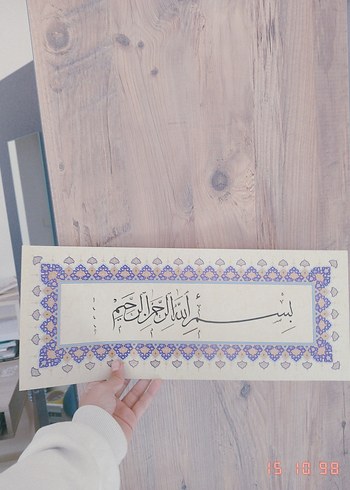 بِسْمِ اللَّهِ الرَّحْمَٰنِ الرَّحِيمِ
15 10 98